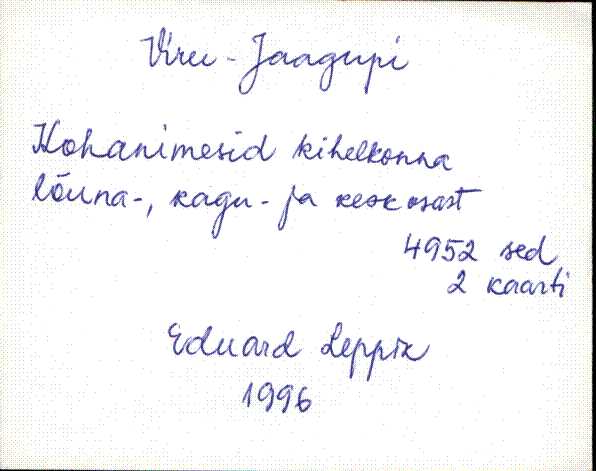 Viru-Jaagupi
Kohanimesid kihelkonna
lõuna-, kagu- ja keskosast
4952 sed
2 kaarti
Eduard Leppik
1996